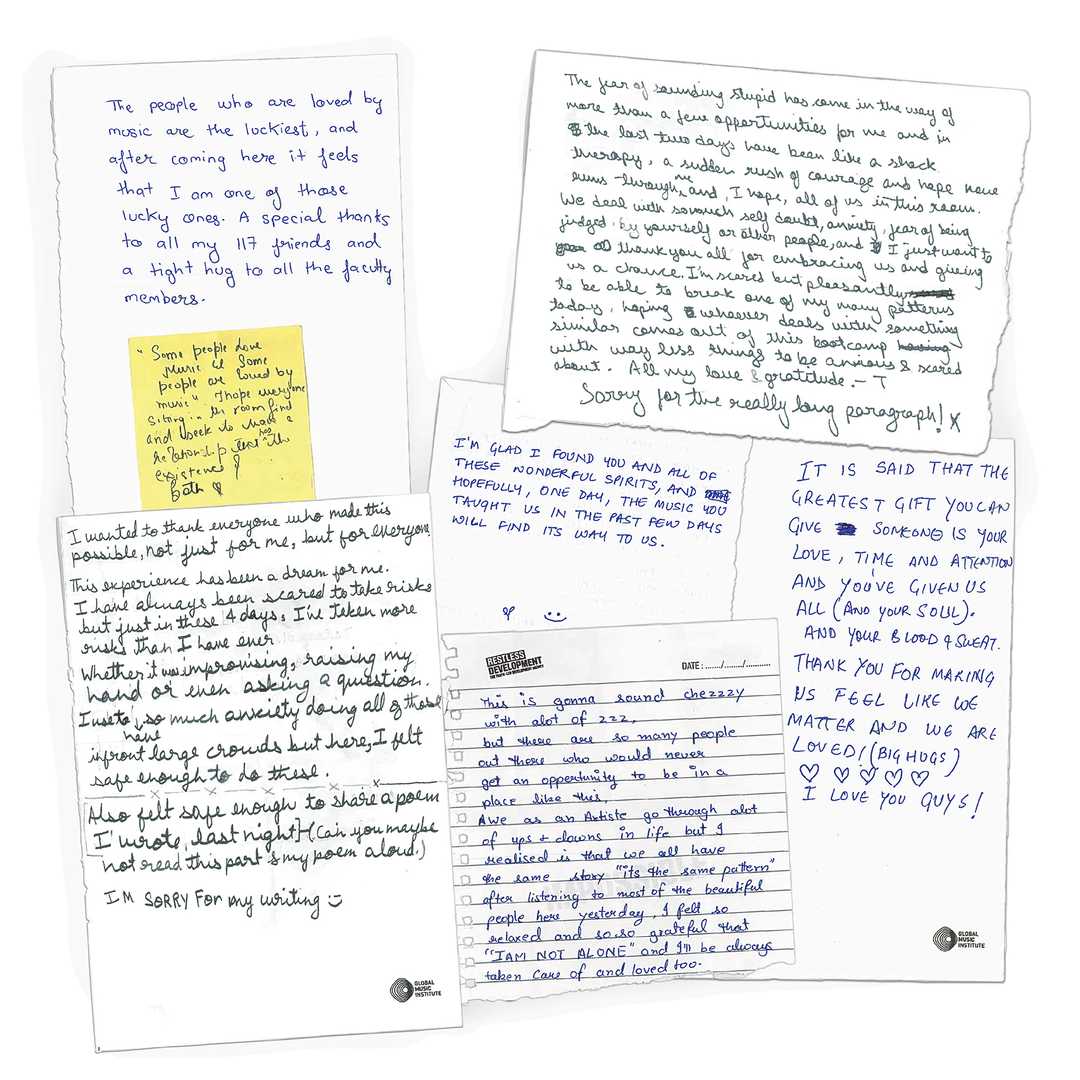 The people who are loved by
music are the luckiest, and
after coming here it feels
that I am one of those
lucky ones. A special thanks
to all my 117 friends and
a tight hug to all the faculty
members.
"Some people love
music & Some
people are loved by
music" I hope everyone
sitting in the room find
and seek to have a
relationship
existence
The fear of sounding stupid has come in the way of
more than a few opportunities for me and in
the last two days have been like a shock
therapy, a sudden rush of courage and hope have
runs through me and, I hope, all of us in this room.
We deal with somuch self doubt, anxiety, fear of being
judged, by yourself or other people, and I just want to
thank you all for embracing us and giving
us a chance. I'm scared but pleasantly
to be able to break one of my many patterns
today, hoping whoever deals with something
similar comes out of this bootcamp having
with way less things to be anxious & scared
about. All my love & gratitude. - T
Sorry for the really long paragraph! X
I'M GLAD I FOUND YOU AND ALL OF
THESE WONDERFUL SPIRITS, AND
HOPEFULLY, ONE DAY, THE MUSIC YOU
TAUGHT US IN THE PAST FEW DAYS
WILL FIND ITS WAY TO US.
IT IS SAID THAT THE
GREATEST GIFT YOU CAN
GIVE SOMEONE IS YOUR
LOVE, TIME AND ATTENTION
AND YOU'VE GIVEN US
ALL (AND YOUR SOUL).
AND YOUR BLOOD & SWEAT.
THANK YOU FOR MAKING
US FEEL LIKE WE
MATTER AND WE ARE
LOVED! (BIG HUGS)
♡ ♡ ♡ ♡ ♡
I LOVE YOU GUYS!
GLOBAL
MUSIC
INSTITUTE
I wanted to thank everyone who made this
possible, not just for me, but for everyone
This experience has been a dream for me.
I have always been scared to take risks
but just in these 4 days, I've taken more
risks than I have ever
Whether it was improvising, raising my
hand or even asking a question.
I use to have so much anxiety doing all of those
infront large crowds but here, I felt
safe enough to do these.
Also felt safe enough to share a poem
I wrote last night] - (Can you maybe
not read this part & my poem aloud.)
I'M SORRY FOR my writing
GLOBAL
MUSIC
INSTITUTE
RESTLESS
DEVELOPMENT
THE YOUTH-LED DEVELOPMENT AGENCY
DATE : ....../......../...........
This is gonna sound chezzzy
with alot of zzz,
but there are so many people
out there who would never
get an opportunity to be in a
place like this,
Awe as an Artiste go through alot
of ups & downs in life but I
realised is that we all have
the same story "its the same pattern"
after listening to most of the beautiful
people here yesterday, I felt so
relaxed and so, so grateful that
"I AM NOT ALONE" and I'll be always
taken care of and loved too.